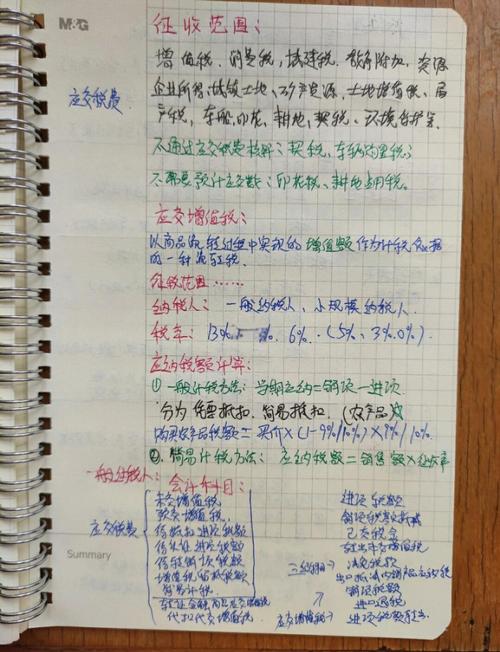 M&G
征收范围：
增值税、消费税、城建税、教育附加、资源
企业所得、城镇土地、矿产资源、土地增值税、房
产税、车船、印花、耕地、契税、环境保护等
应交税费
不通过应交税费核算：契税、车辆购置税；
不需要预计应交数：印花税、耕地占用税。
应交增值税：
以商品流转过程中实现的增值额作为计税依据
的一种流转税.
征税范围……
纳税人：一般纳税人、小规模纳税人.
税率：13% 9%. 6%. (5%、3%.0%).
应纳税额计算：
① 一般计税方法：当期应纳=销项一进项
分为 凭票抵扣、简易抵扣.(农产品)
购买农产品税额=买价×(1-9%/10%)×9%/10%
②. 简易计税方法：应纳税额=销售额×征收率
一般纳税人：会计科目：
应交税费
未交增值税
预交增值税
待抵扣进项税额
待认证进项税额
待转销项税额
增值税留抵税额
简易计税
转让金融商品应交增值税
代扣代交增值税
三级明细
应交增值税
进项税额
销项税额抵减
已交税金
转出未交增值税
减免税款
出口抵减内销产品应纳税
销项税额
出口退税
进项税额转出
Summary